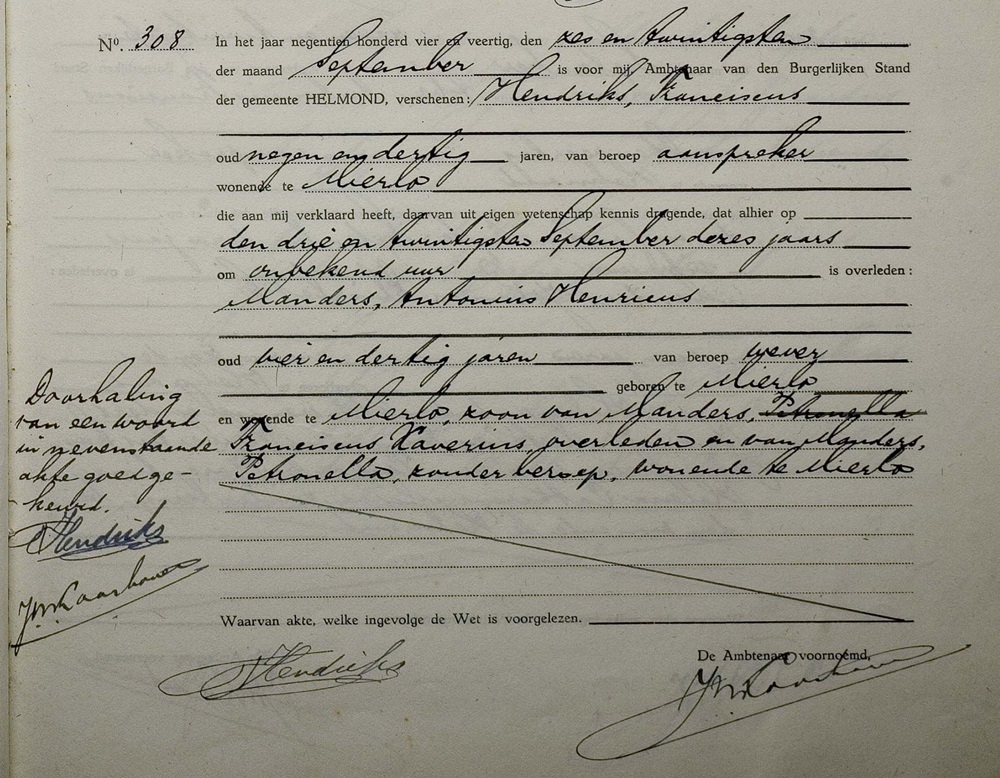 Nº. 308
In het jaar negentien honderd vier en veertig, den zes en twintigsten
der maand September is voor mij, Ambtenaar van den Burgerlijken Stand
der gemeente HELMOND, verschenen: Hendriks, Franciscus
oud negen en dertig jaren, van beroep aanspreker
wonende te Mierlo
die aan mij verklaard heeft, daarvan uit eigen wetenschap kennis dragende, dat alhier op
den drie en twintigsten September dezes jaars
om onbekend uur is overleden:
Manders, Antonius Henricus
oud vier en dertig jaren van beroep wever
geboren te Mierlo
en wonende te Mierlo, zoon van Manders, Petronella
Franciscus Xaverius, overleden en van Manders,
Petronella, zonder beroep, wonende te Mierlo
Doorhaling
van een woord
in nevenstaande
akte goedge-
keurd.
Hendriks
Waarvan akte, welke ingevolge de Wet is voorgelezen.
De Ambtenaar voornoemd,
Hendriks